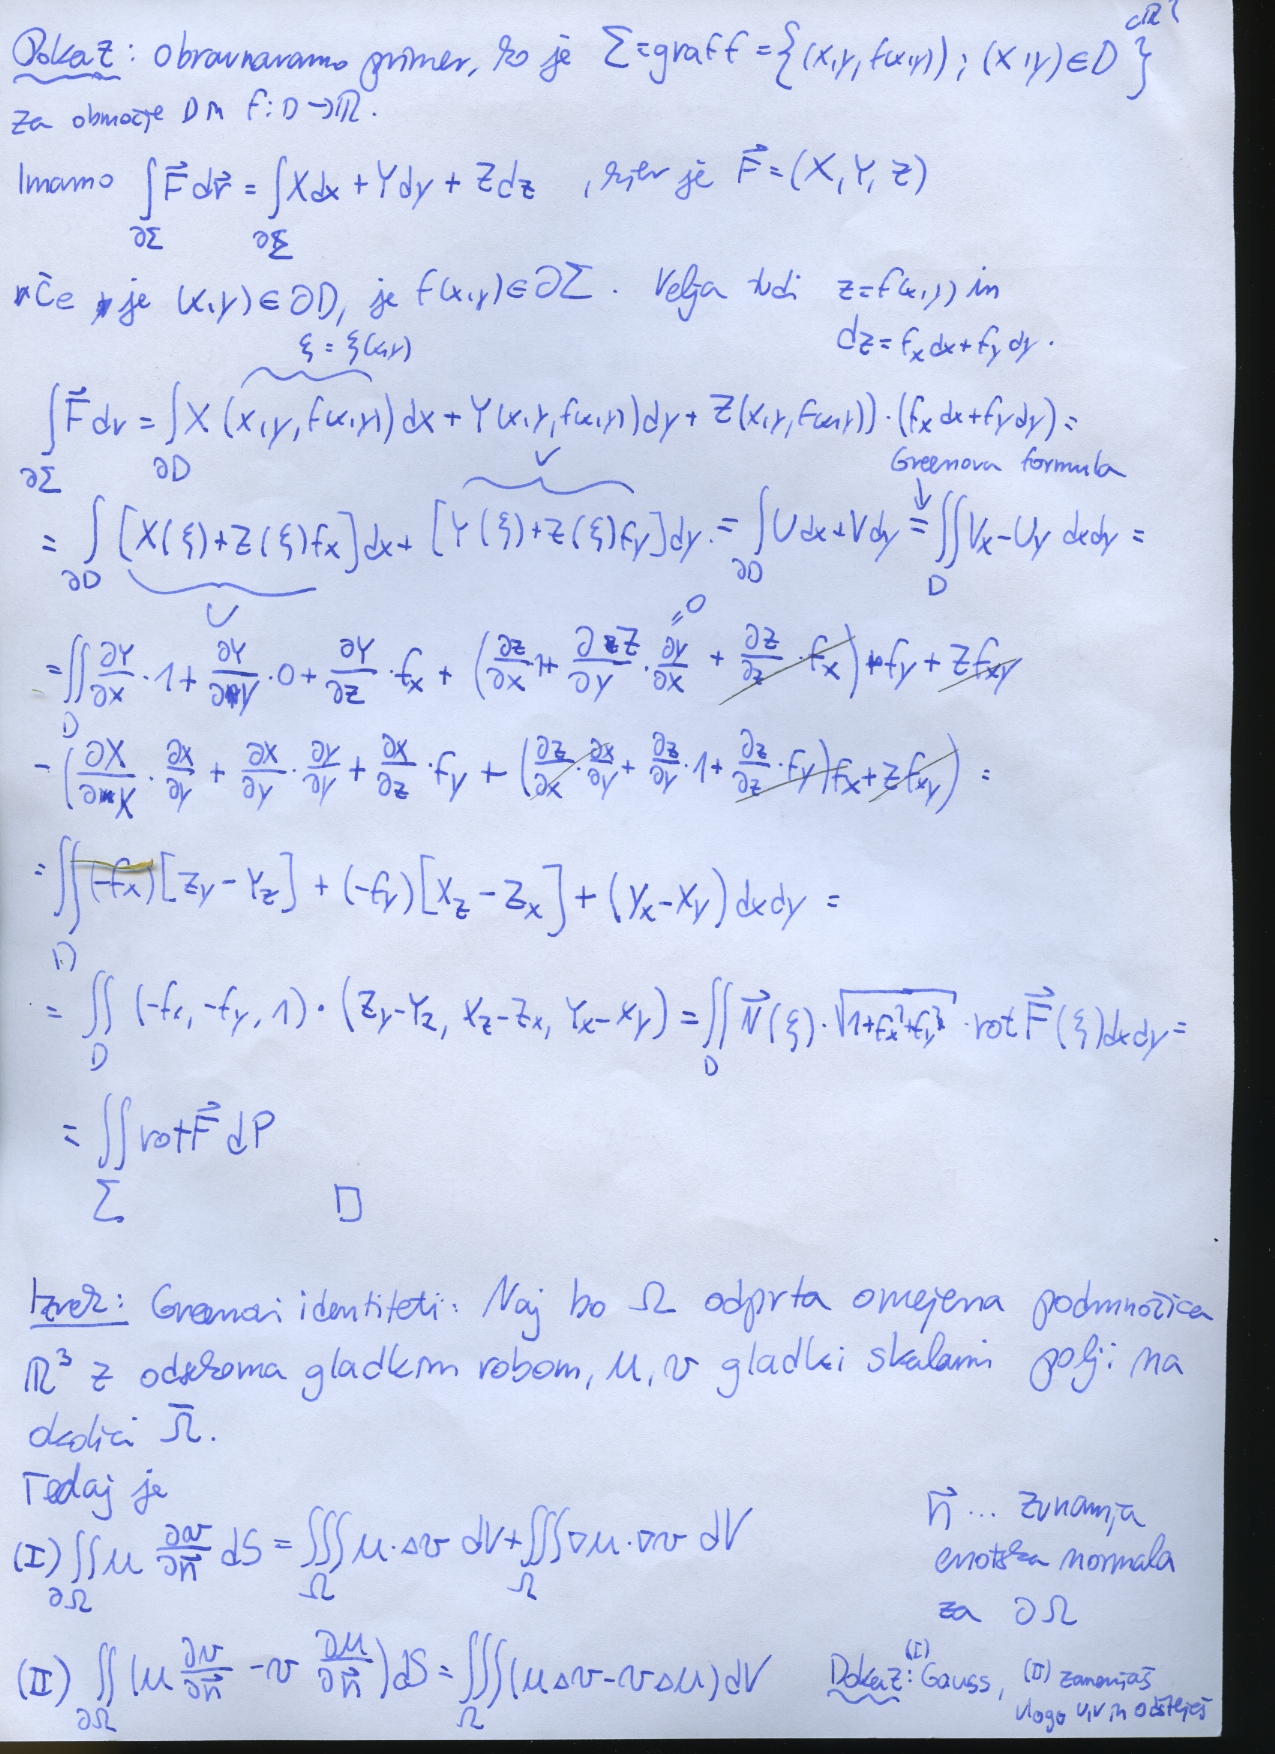 Dokaz: Obravnavamo primer, ko je Σ = graf f = {(x,y,f(x,y)); (x,y) ∈ D} ⊂ℝ³
za območje D in f: D → ℝ.
Imamo ∫_{∂Σ} F⃗ dr⃗ = ∫_{∂Σ} X dx + Y dy + Z dz , kjer je F⃗ = (X, Y, Z)
Če je (x,y) ∈ ∂D, je f(x,y) ∈ ∂Σ. Velja tudi z = f(x,y) in
dz = f_x dx + f_y dy.
ξ = ξ(x,y)
∫_{∂Σ} F⃗ dr = ∫_{∂D} X(x,y,f(x,y)) dx + Y(x,y,f(x,y)) dy + Z(x,y,f(x,y)) · (f_x dx + f_y dy) =
V Greenova formula
= ∫_{∂D} [X(ξ) + Z(ξ) f_x] dx + [Y(ξ) + Z(ξ) f_y] dy = ∫_{∂D} U dx + V dy = ∬_D V_x − U_y dx dy =
U =0
= ∬_D ∂Y/∂x · 1 + ∂Y/∂y · 0 + ∂Y/∂z · f_x + (∂z/∂x · 1 + ∂Z/∂y · ∂y/∂x + ∂z/∂z · f_x) · f_y + Z f_xy
− (∂X/∂x · ∂x/∂y + ∂x/∂y · ∂y/∂y + ∂x/∂z · f_y + (∂z/∂x · ∂x/∂y + ∂z/∂y · 1 + ∂z/∂z · f_y) f_x + z f_xy) =
= ∬_D (−f_x)[Z_y − Y_z] + (−f_y)[X_z − Z_x] + (Y_x − X_y) dx dy =
= ∬_D (−f_x, −f_y, 1) · (Z_y − Y_z, X_z − Z_x, Y_x − X_y) = ∬_D N⃗(ξ) · √(1 + f_x² + f_y²) · rot F⃗(ξ) dx dy =
= ∬_Σ rot F⃗ dP
□
Izrek: Greenovi identiteti: Naj bo Ω odprta omejena podmnožica
ℝ³ z odsekoma gladkim robom, u, v gladki skalarni polji na
okolici Ω̄.
Tedaj je
(I) ∬_{∂Ω} u ∂v/∂n⃗ dS = ∭_Ω u · Δv dV + ∭_Ω ∇u · ∇v dV
n⃗ ... zunanja
enotska normala
za ∂Ω
(II) ∬_{∂Ω} (u ∂v/∂n⃗ − v ∂u/∂n⃗) dS = ∭_Ω (u Δv − v Δu) dV
Dokaz: (I) Gauss, (II) zamenjaš
vlogo u,v in odšteješ